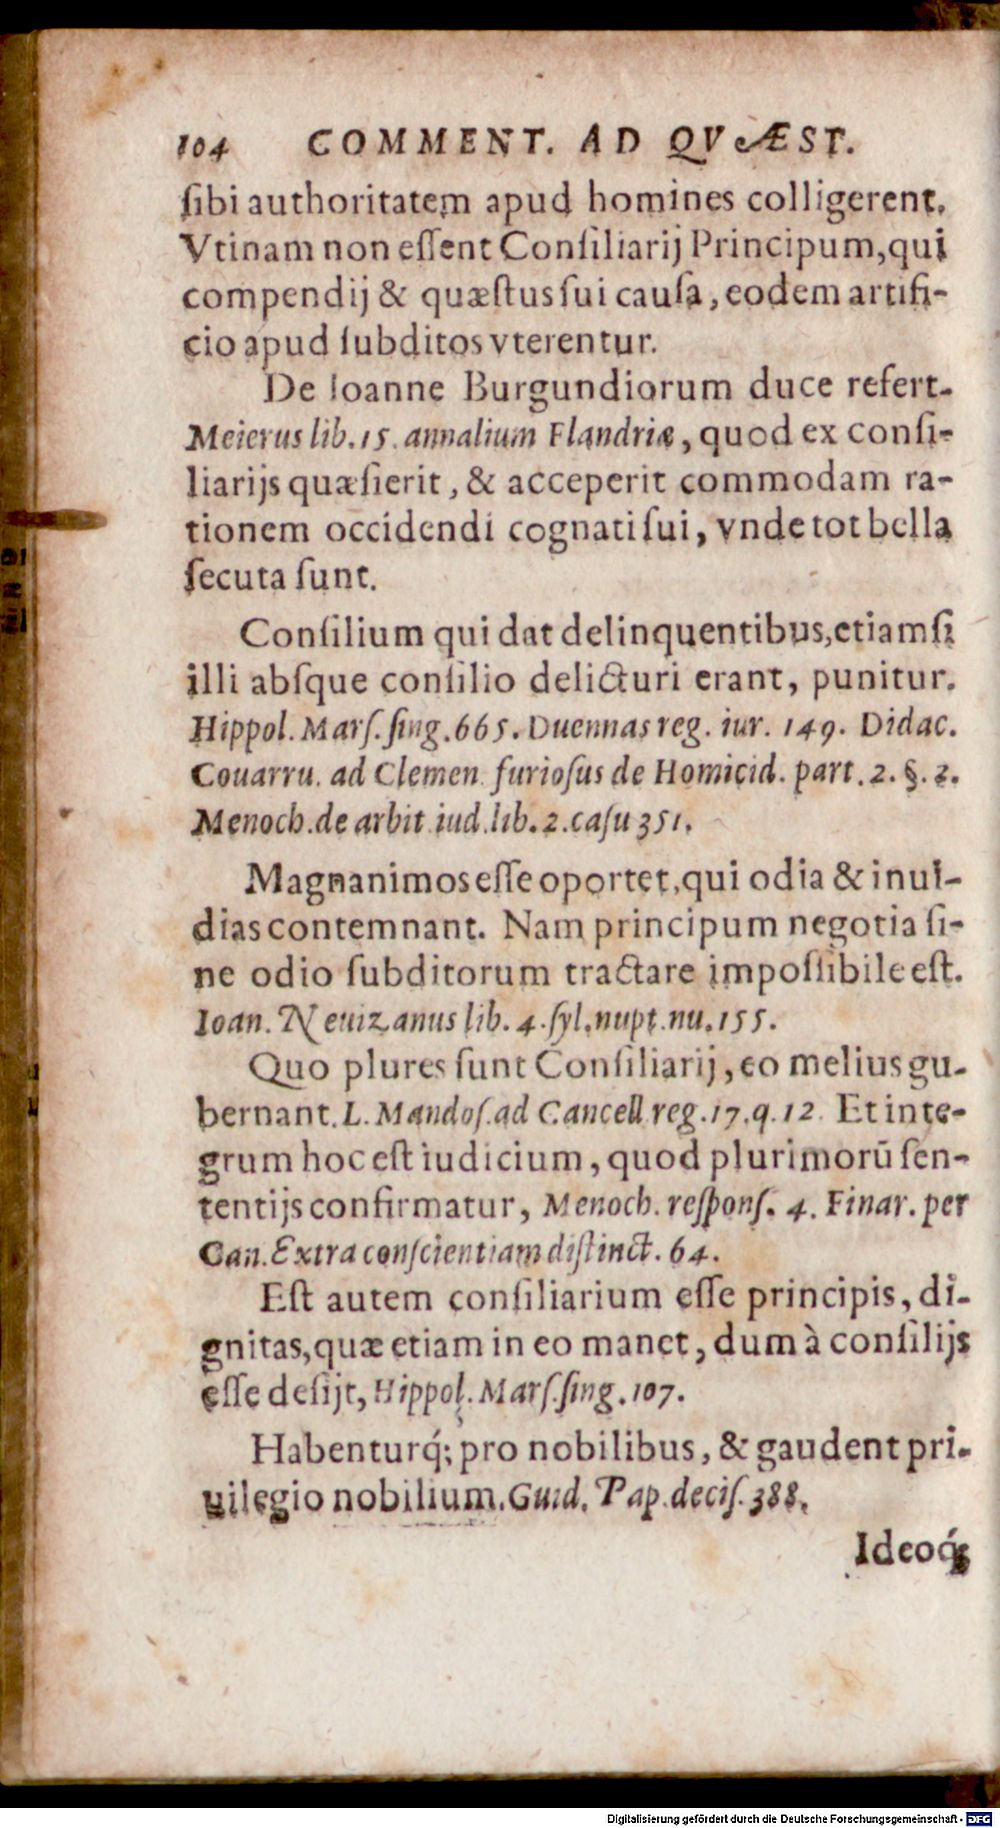 104 COMMENT. AD QVÆST.
ſibi authoritatem apud homines colligerent.
Vtinam non eſſent Conſiliarij Principum, qui
compendij & quæſtus ſui cauſa, eodem artifi-
cio apud ſubditos vterentur.
De Ioanne Burgundiorum duce refert-
Meierus lib. 15. annalium Flandriæ, quod ex conſi-
liarijs quæſierit, & acceperit commodam ra-
tionem occidendi cognati ſui, vnde tot bella
ſecuta ſunt.
Conſilium qui dat delinquentibus, etiamſi
illi abſque conſilio delicturi erant, punitur.
Hippol. Marſ. ſing. 665. Duennas reg. iur. 149. Didac.
Couarru. ad Clemen. furioſus de Homicid. part. 2. §. 2.
Menoch. de arbit. iud. lib. 2. caſu 351.
Magnanimos eſſe oportet, qui odia & inui-
dias contemnant. Nam principum negotia ſi-
ne odio ſubditorum tractare impoſſibile eſt.
Ioan. Neuizanus lib. 4. ſyl. nupt. nu. 155.
Quo plures ſunt Conſiliarij, eo melius gu-
bernant. L. Mandoſ. ad Cancell. reg. 17. q. 12. Et inte-
grum hoc eſt iudicium, quod plurimorū ſen-
tentijs confirmatur, Menoch. reſponſ. 4. Finar. per
Can. Extra conſcientiam diſtinct. 64.
Eſt autem conſiliarium eſſe principis, di-
gnitas, quæ etiam in eo manet, dum à conſilijs
eſſe deſijt, Hippol. Marſ. ſing. 107.
Habenturq́; pro nobilibus, & gaudent pri-
uilegio nobilium. Guid. Pap. deciſ. 388.
Ideoq́;
Digitalisierung gefördert durch die Deutsche Forschungsgemeinschaft - DFG